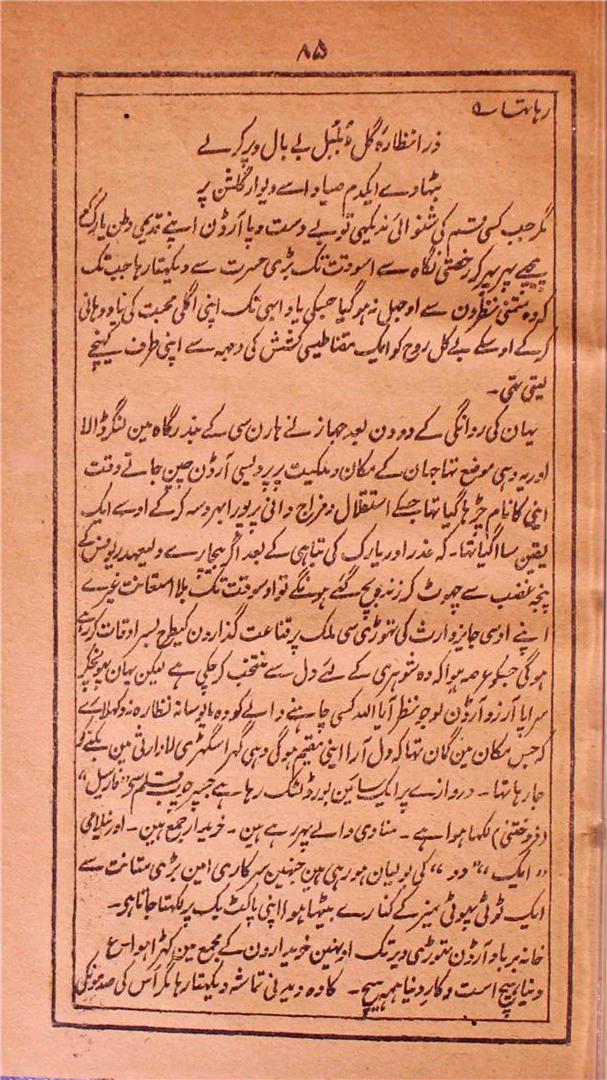 ۸۵
رہا تھا ے
ذرا نظارۂ گل بلبل بے بال و پر کر لے
بٹھادے ایکدم صیاد اسے دیوار گلشن پر
مگر جب کسی قسم کی شنوائی ندیکھی تو بے دست و پا آرڈن اپنے قدیمی وطن یارک کو
پیچھے پھر پھر کر رخصتی نگاہ سے اسوقت تک بڑی حسرت سے دیکھتا رہا جب تک
کہ وہ نظرون سے اوجھل نہ ہو گیا جسکی یاد ابھی تک اپنی اگلی محبت کی یاد دہانی
کر کے اوسکے بے کل روح کو ایک مقناطیسی کشش کی وجہہ سے اپنی طرف کھینچے
لیتی تھی۔
یہان کی روانگی کے دو دن بعد جہاز نے ہارن سی کے بندرگاہ مین لنگر ڈالا
اور یہ وہی موضع تھا جہان کے مکان و ملکیت پر پردیسی آرڈن چین جاتے وقت
اینی کا نام چڑہا گیا تھا جسکے استقلال مزاج و انی پر پورا بھروسہ کر کے اوسے ایک
یقین سا آگیا تھا۔ کہ غدر اور یارک کی تباہی کے بعد اگر بیچارے ولیعہد
پنجہ غضب سے چھوٹ کہ زندہ بچ گئے ہونگے تو اوسوقت تک بلا استعانت غیرے
اپنے اوسی جایز وارث کی تھوڑی سی ملک پر قناعت گذارون کیطرح بسر اوقات کر رہے
ہو گی جسکو عرصہ ہوا کہ وہ شوہری کے لئے دل سے منتخب کر چکی ہے لیکن یہان پہونچکر
سراپا آرزو آرڈن کو جو نظر آیا اللہ کسی چاہنے والے کو وہ مایوسانہ نظارہ نہ دکھلاے
کہ جس مکان مین گمان تھا کہ دل آرا اینی مقیم ہو گی وہی گھر اسگھڑی لاوارثی مین بکنے کو
جا رہا تھا۔ دروازے پر ایک سائین بورڈ لٹک رہا ہے جسپر جلی قلم سے ”فارسیل“
(فروختنی) لکھا ہوا ہے۔ منادی والے پھر رہے ہین۔ خریدار جمع ہین۔ اور نیلامی
”ایک“ ”دو“ کی بولیان ہو رہی ہین جنہین سرکاری امین بڑی متانت سے
ایک ٹوٹی پھوٹی میز کے کنارے بیٹھا ہوا اپنی پاکٹ بک پر لکھتا جاتا ہی۔
خانہ برباد آرڈن تھوڑی دیر تک اونہین خریدارون کے مجمع مین کھڑا ہوا ع
دنیا ہیچ است و کار دنیا ہمہ ہیچ۔ کا وہ دیدنی تماشہ دیکھتا رہا مگر اس کی